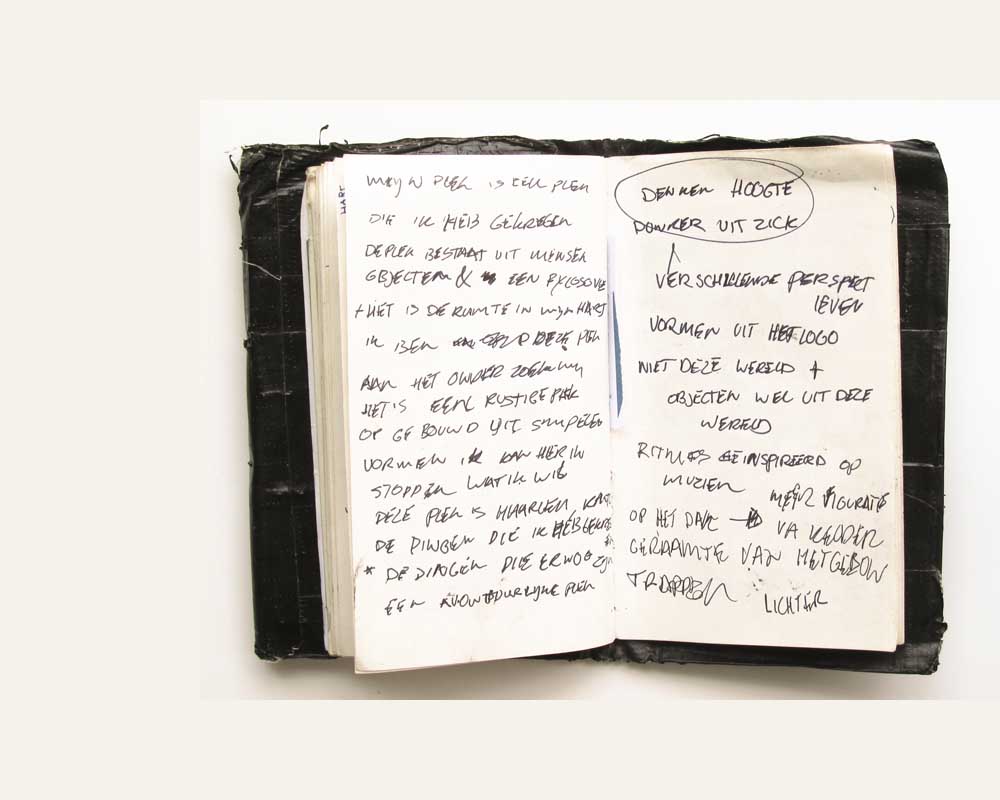 MIJN PLEK IS EEN PLEK
DIE IK HEB GEKREGEN
DE PLEK BESTAAT UIT MENSEN
OBJECTEN & EEN
+ HET IS DE RUIMTE IN mijn HART
IK BEN DEZE PLEK
AAN HET ONDER ZOEKEN
HET IS EEN RUSTIGE PLEK
OP GEBOUWD UIT SIMPELEN
VORMEN IK KAN HIER IN
STOPPEN WAT IK WIL
DEZE PLEK IS HAARLEM
DE DINGEN DIE IK HEB
* DE DINGEN DIE ER NOG ZIJN
EEN AVONTUURLIJKE PLEK
HART
DENKEN HOOGTE
DONKER UIT ZICK
VERSCHILLENDE PERSPECT
IEVEN
VORMEN UIT HET LOGO
NIET DEZE WERELD +
OBJECTEN WEL UIT DEZE
WERELD
RITMES GEINSPIREERD OP
MUZIEK
MEER FIGURATIE
OP HET DAK
VA KELDER
GERAAMTE VAN HET GEBOW
TRAPPEN
LICHTER